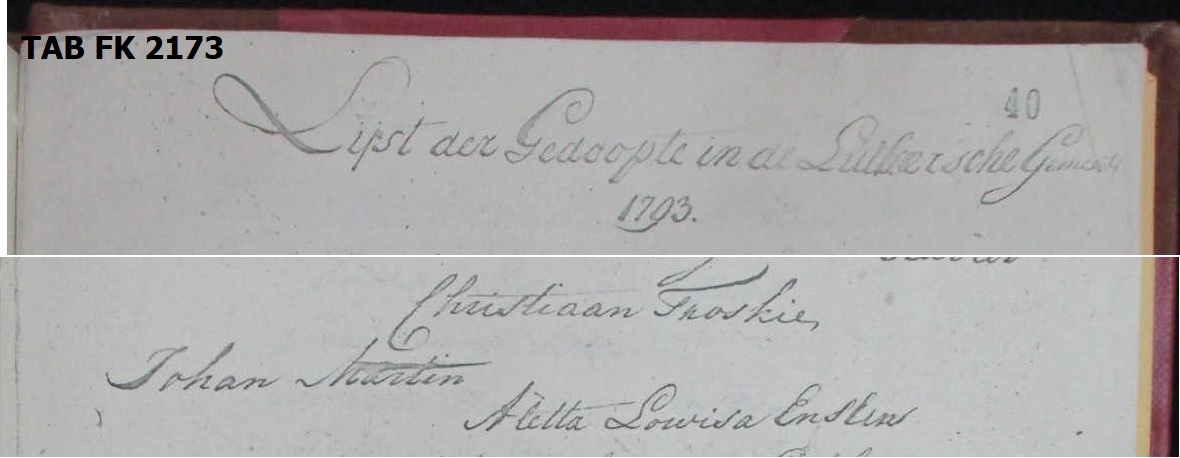 TAB FK 2173
40
Lijst der Gedoopte in de Luthersche Gemeente
1793.
Christiaan Troskie,
Johan Martin
Aletta Lowisa Enslin